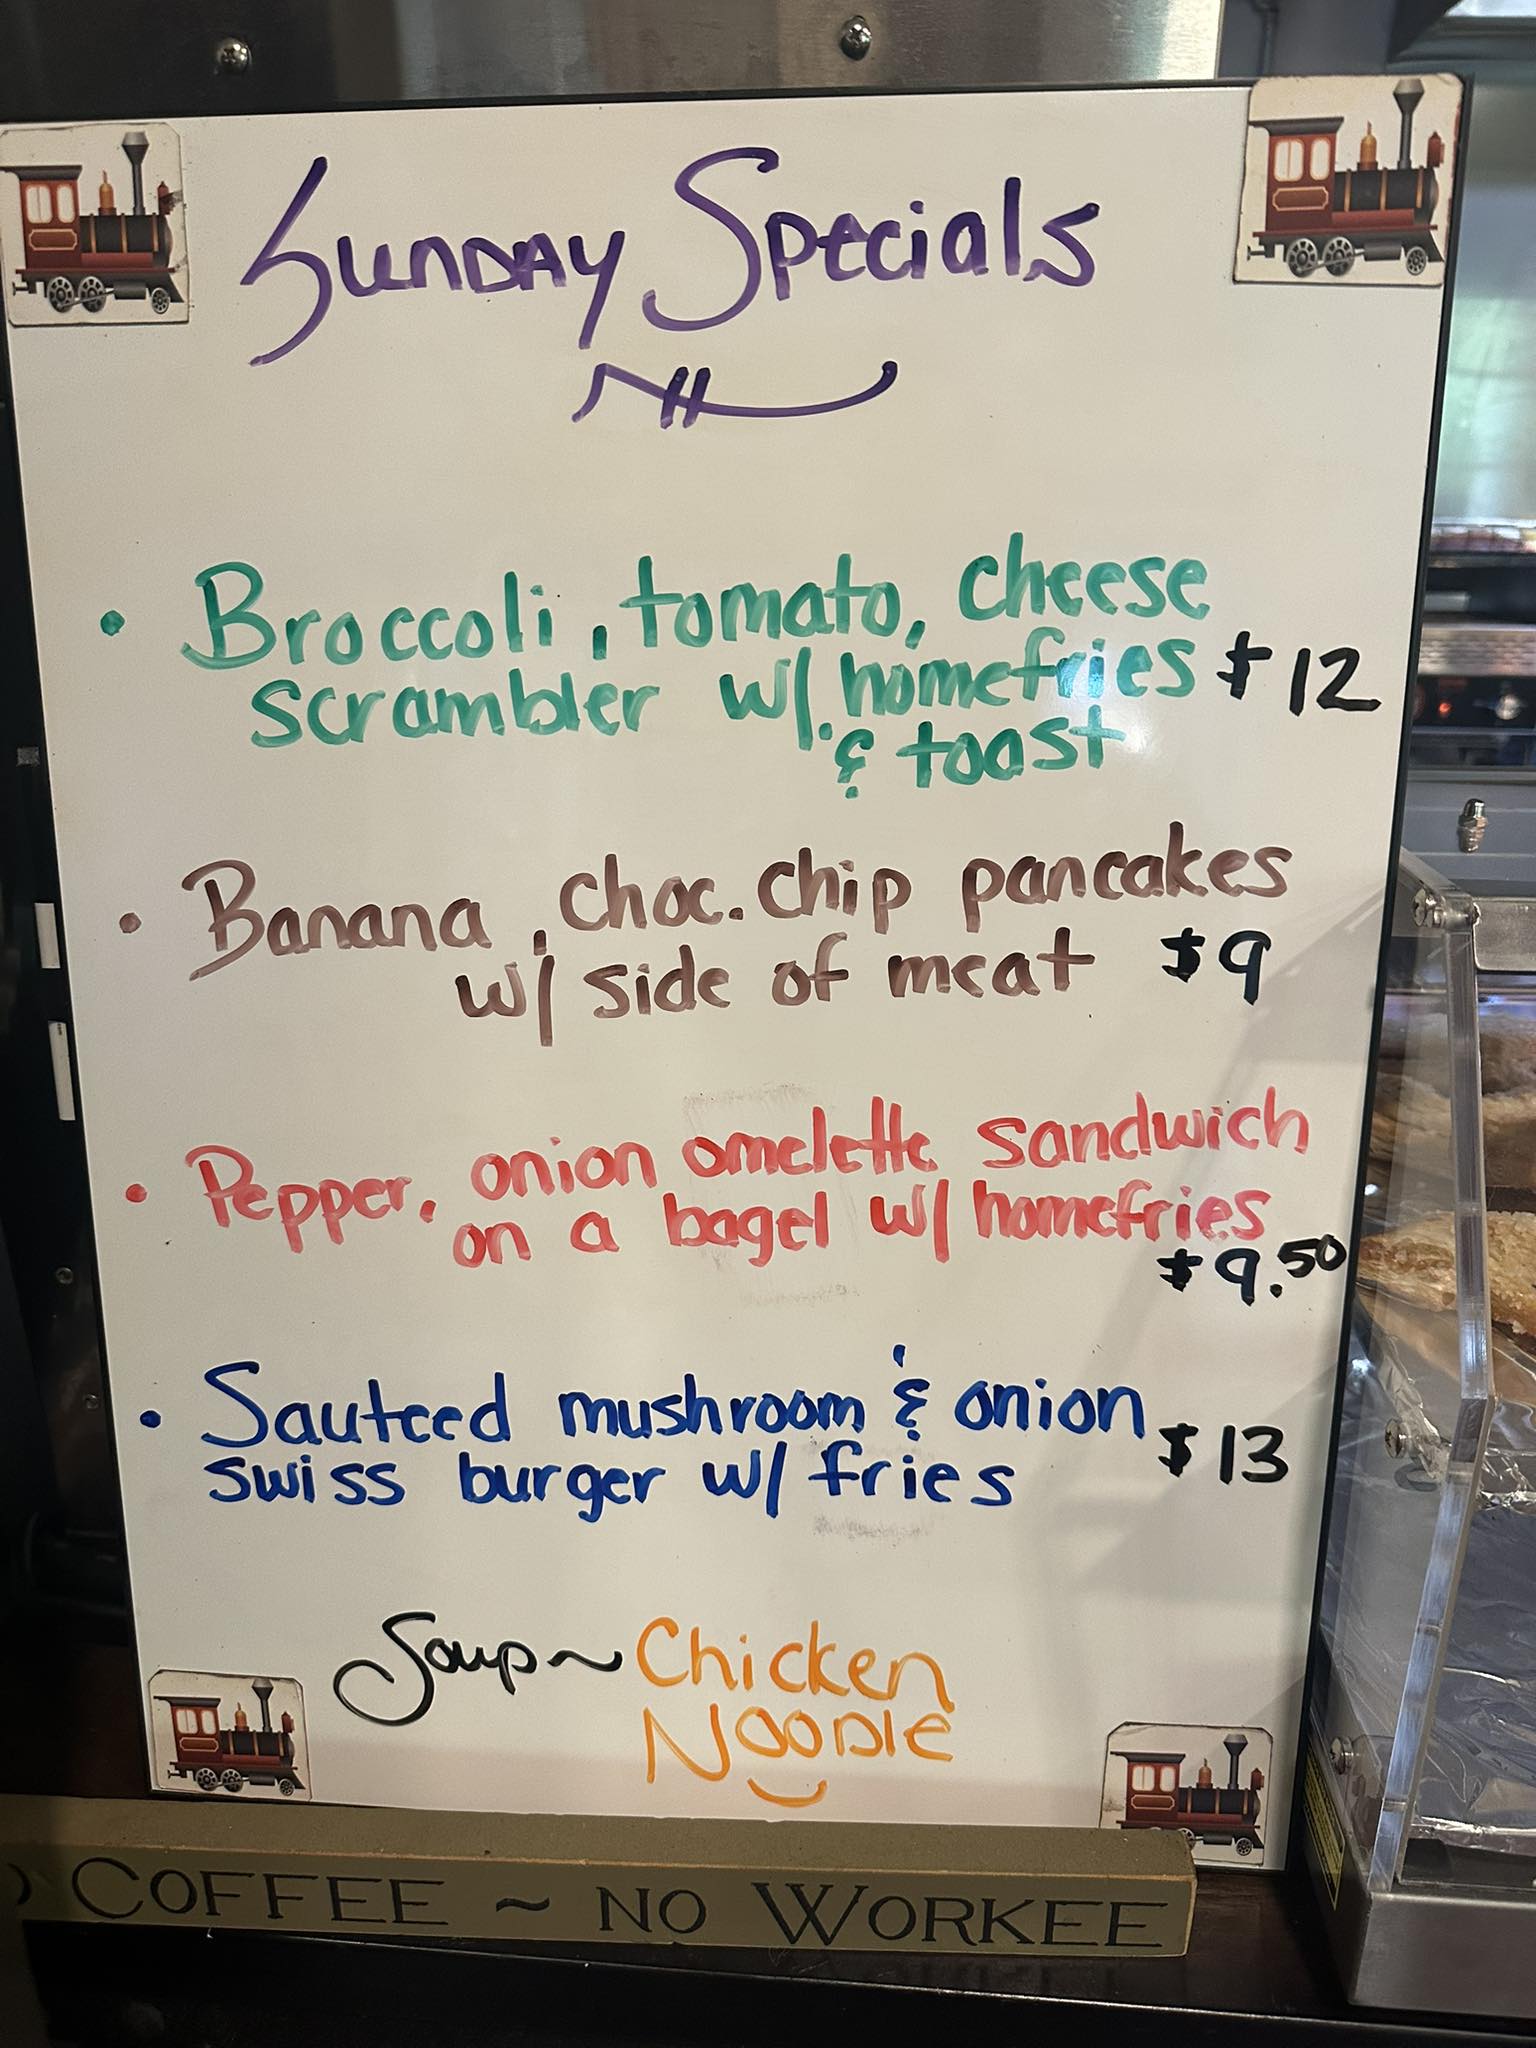 Sunday Specials
• Broccoli, tomato, cheese
scrambler w/ homefries $12
& toast
• Banana, choc. chip pancakes
w/ side of meat $9
• Pepper, onion omelette sandwich
on a bagel w/ homefries
$9.50
• Sauteed mushroom & onion
swiss burger w/ fries $13
Soup ~ Chicken
Noodle
COFFEE ~ NO WORKEE